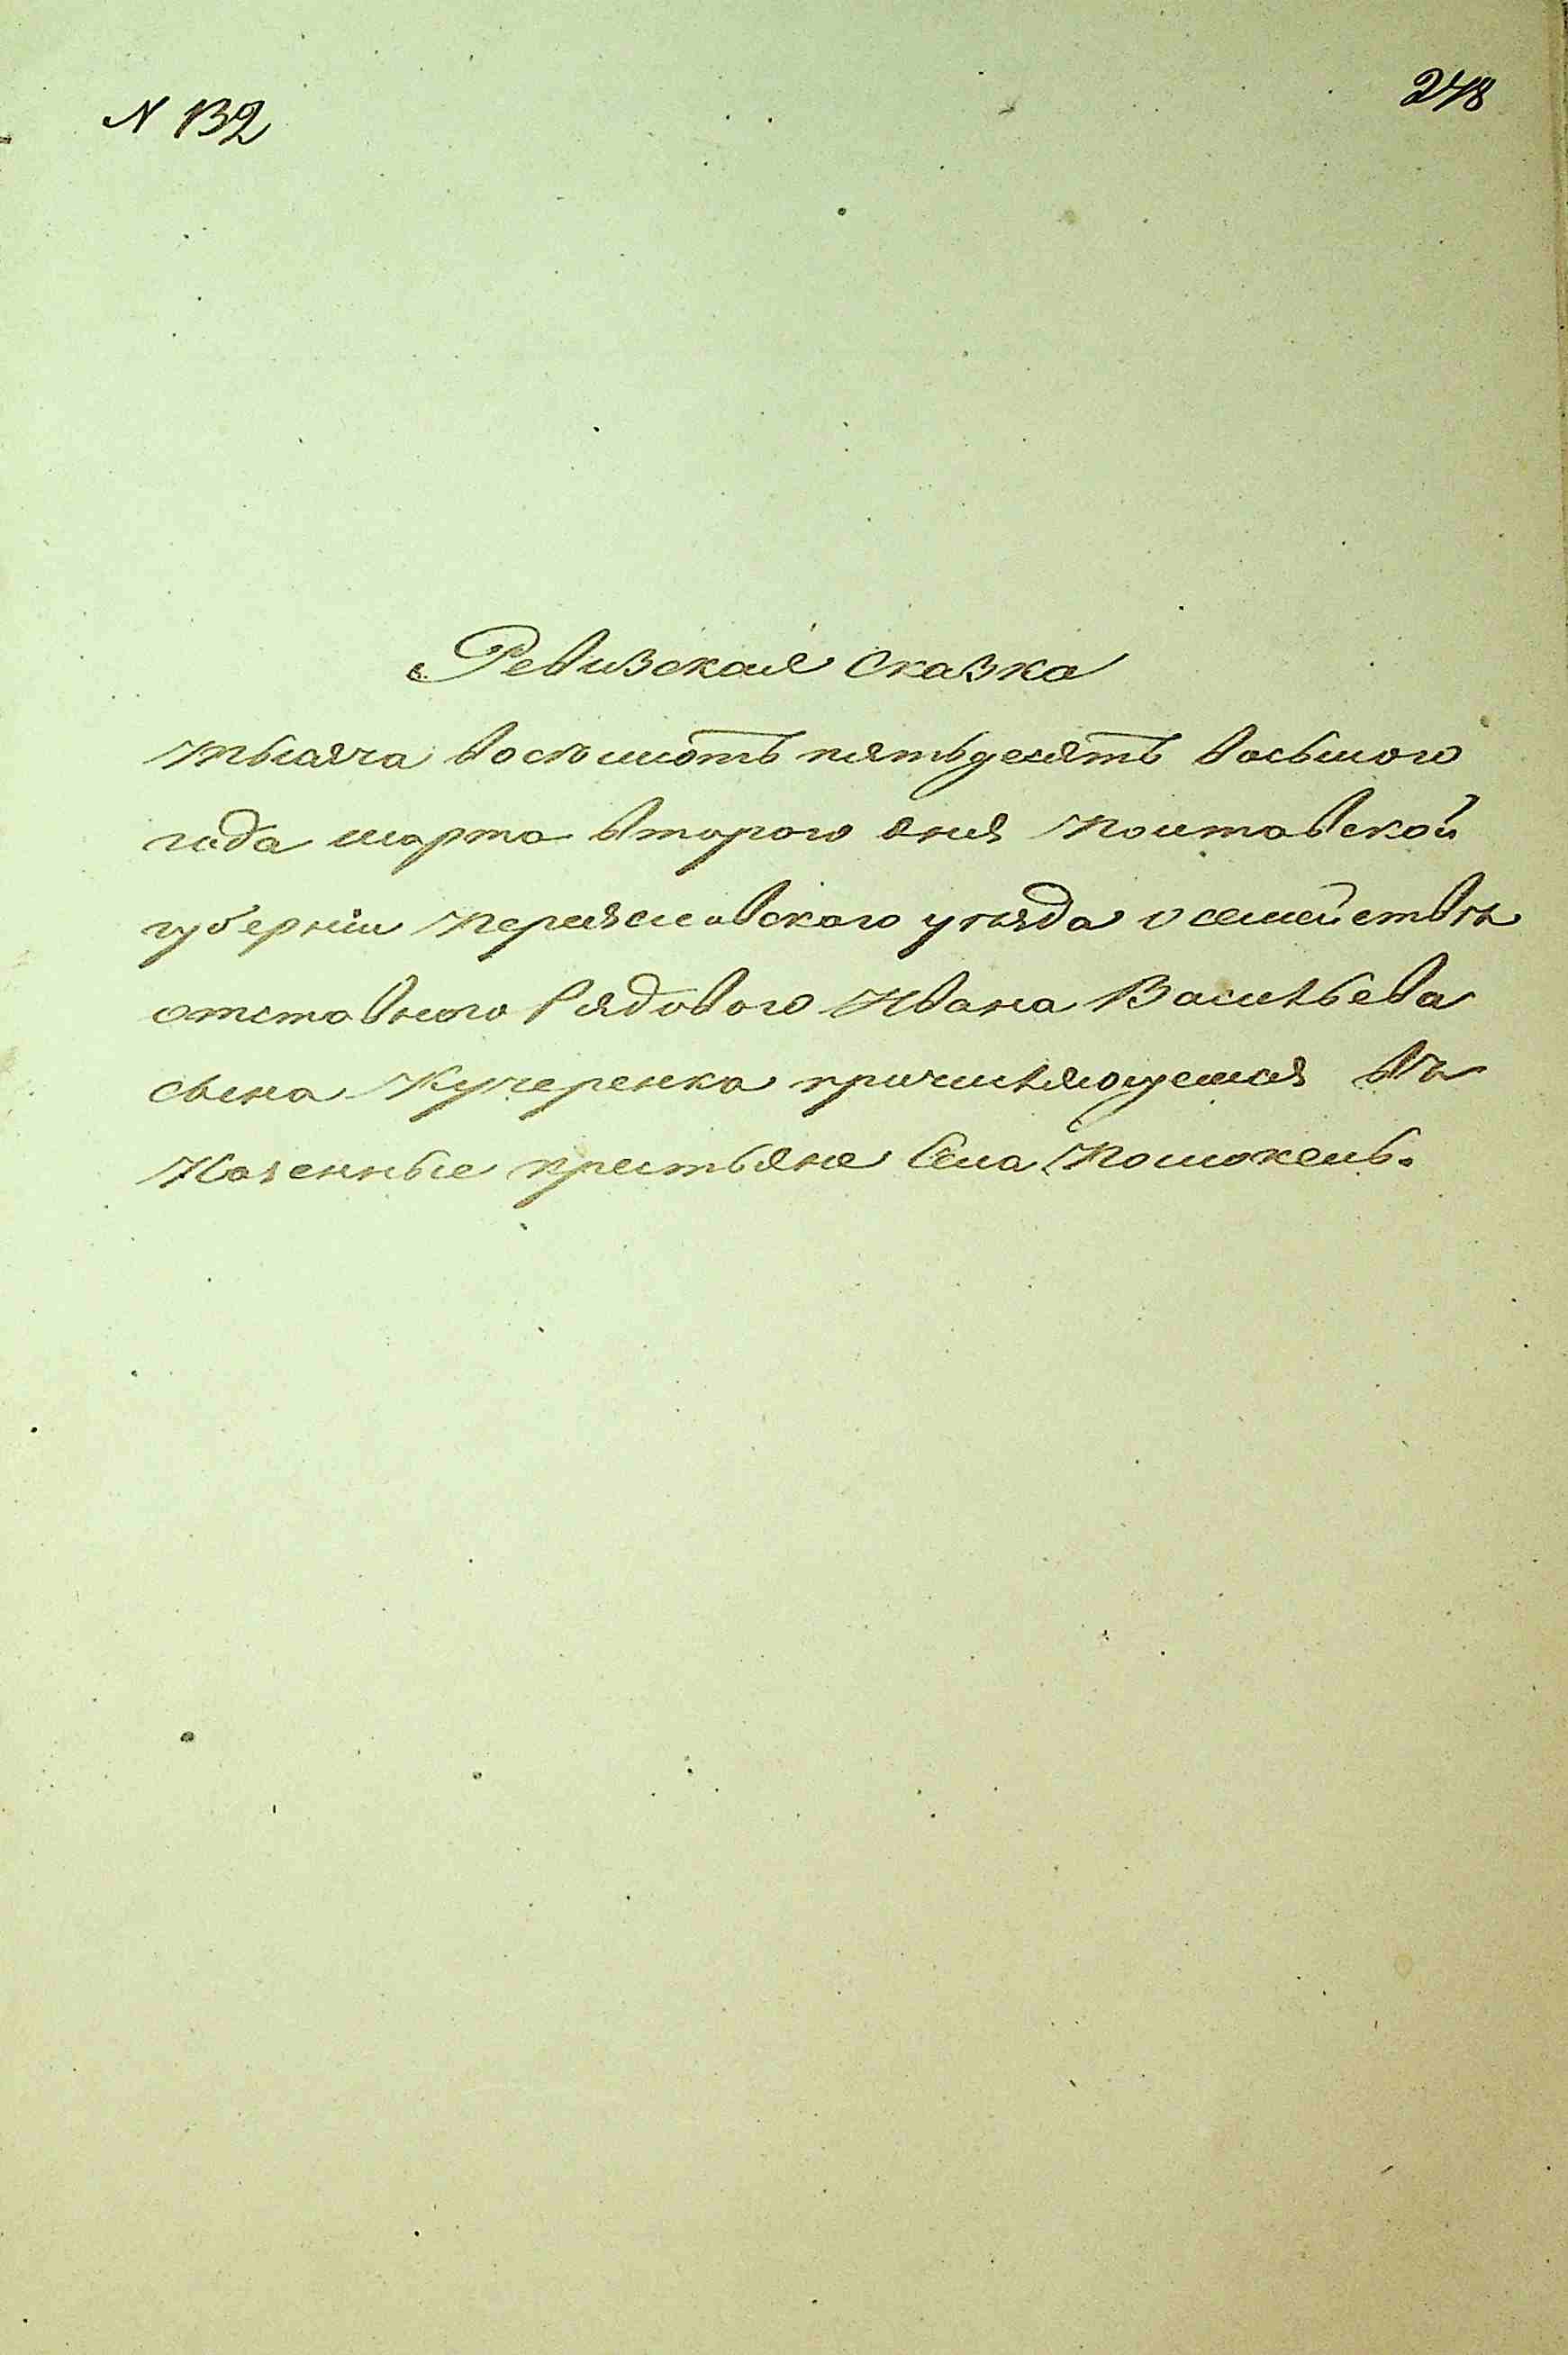 N 132
248
Ревизская сказка
тысяча восемьсотъ пятьдесятъ восьмого
года марта второго дня Полтавской
губерніи Переяславского уѣзда о семействѣ
отставного Рядового Ивана Васильева
сына Кучеренка причисляющемся въ
Казенные крестьяне Села